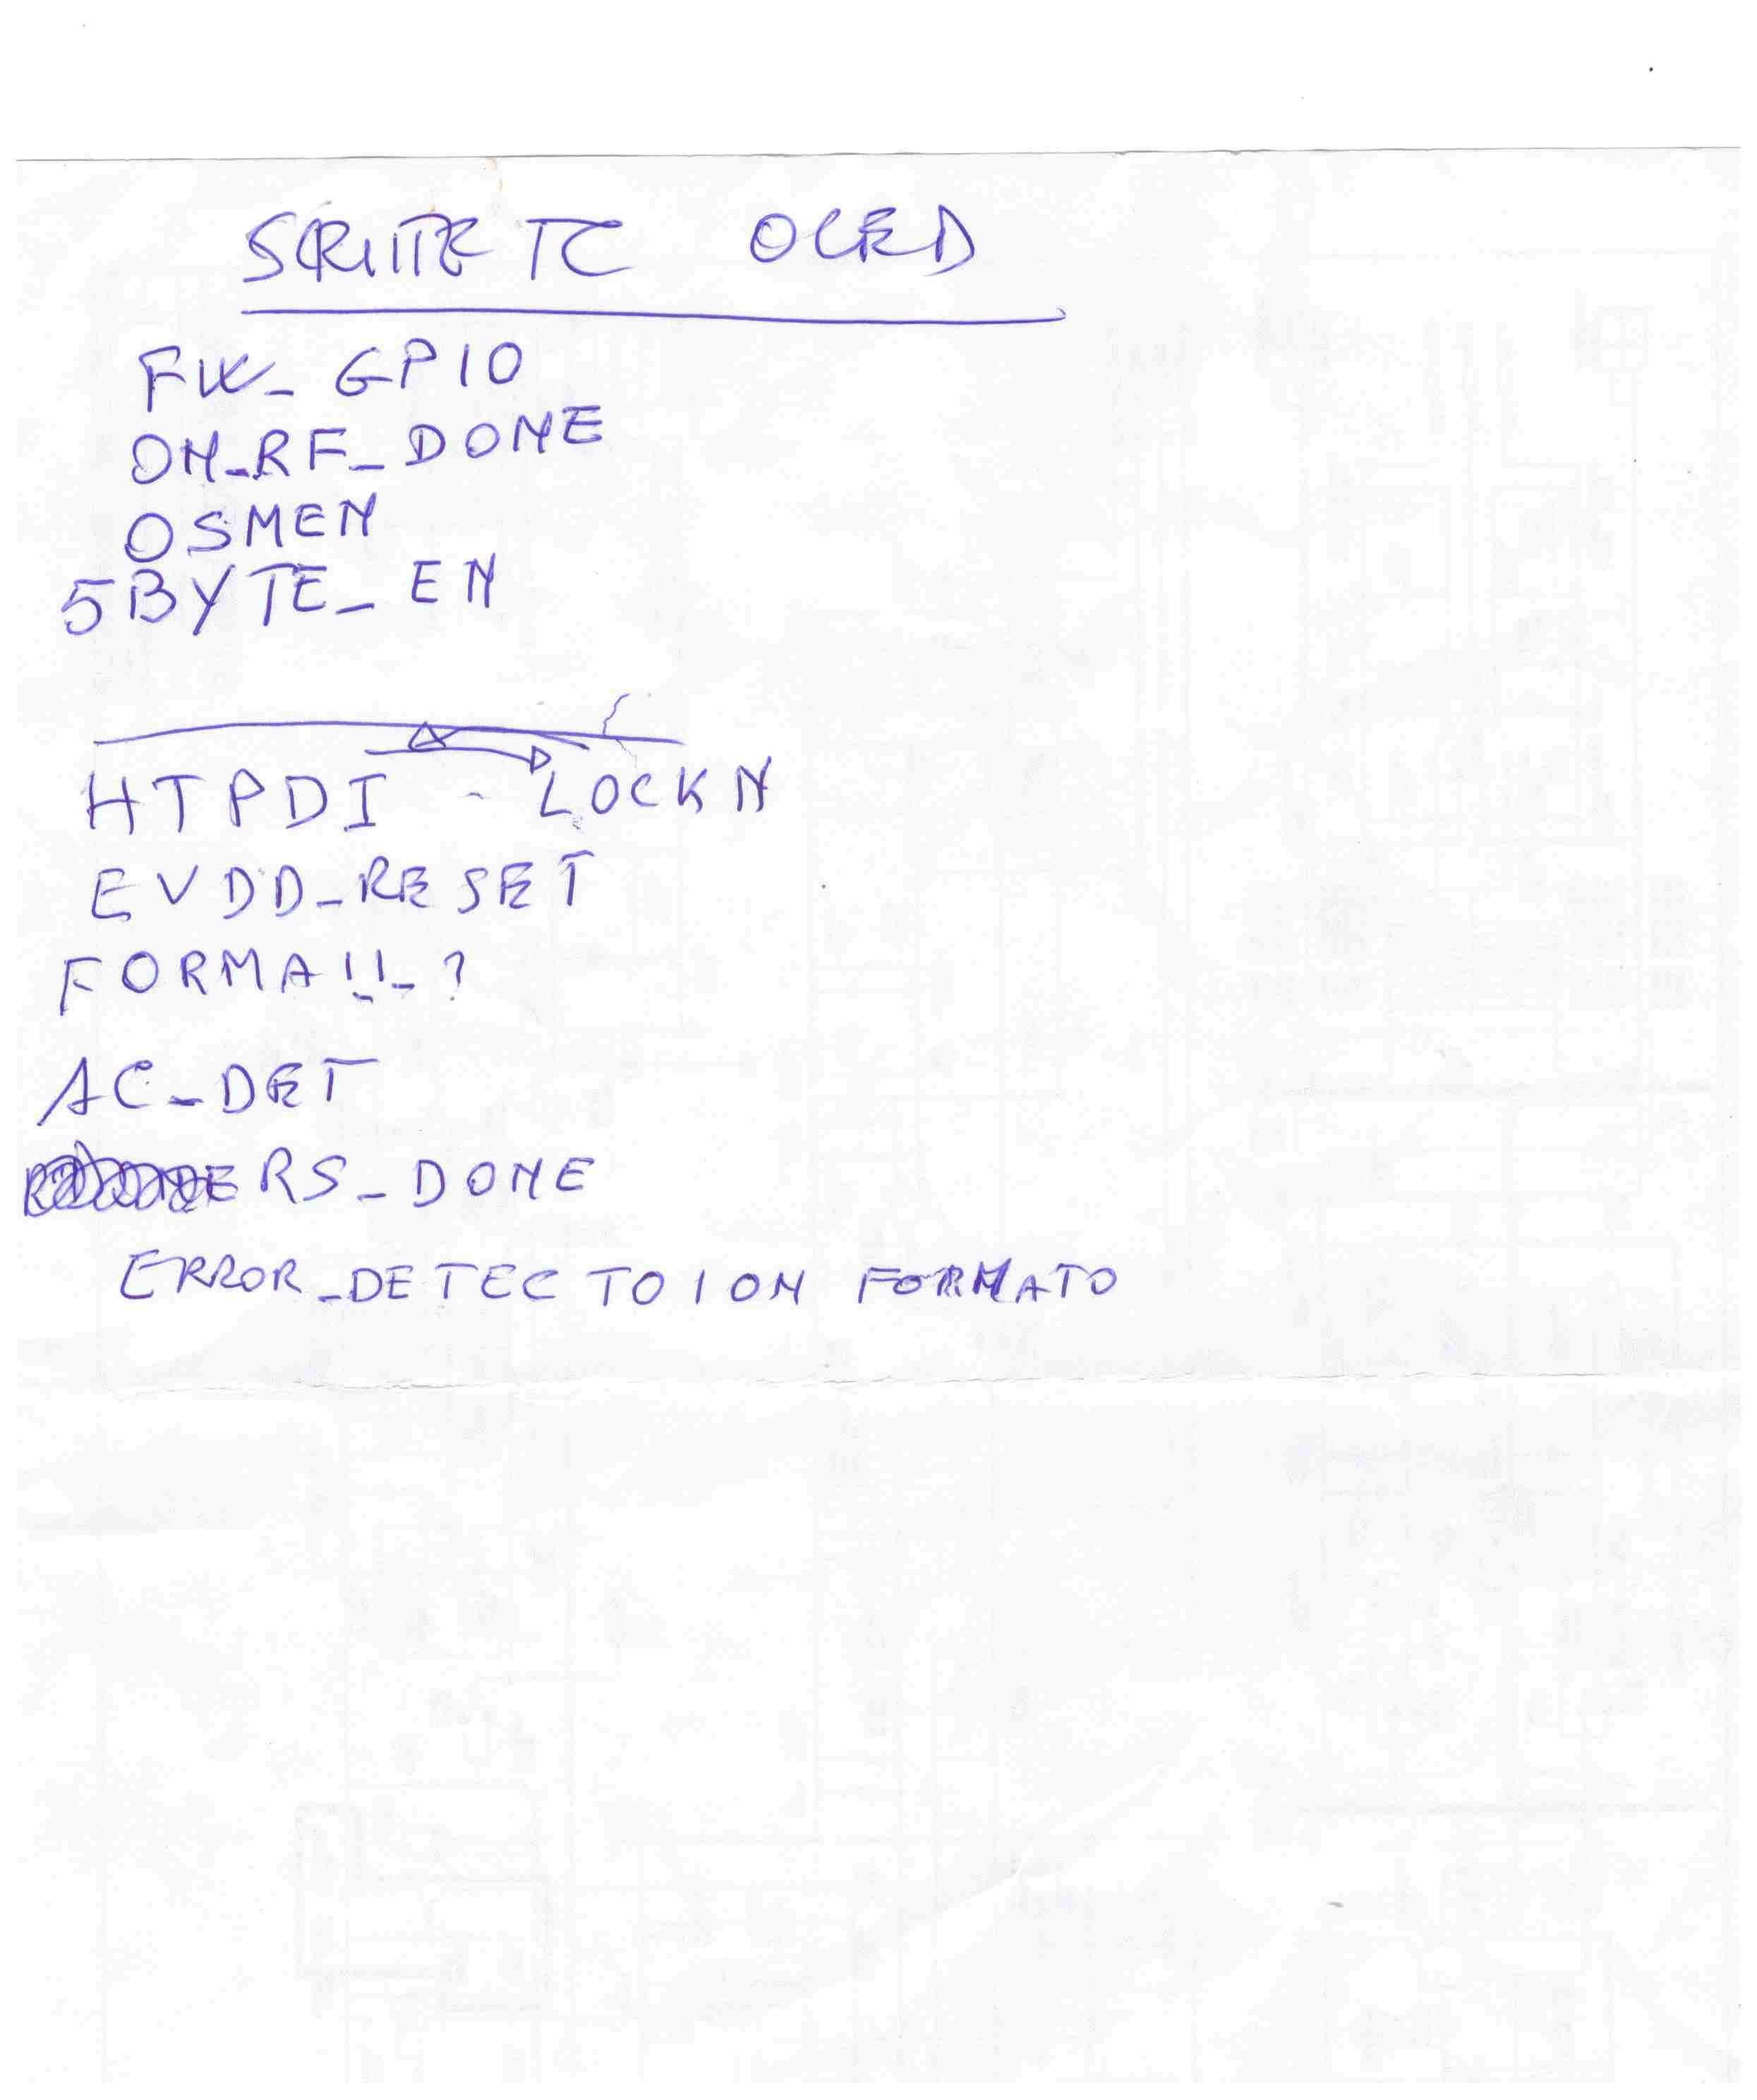 SCRITTE TC OLED
FW_GPIO
ON_RF_DONE
OSMEN
5BYTE_EN
HTPDI - LOCKN
EVDD_RESET
FORMA!!_?
AC_DET
RS_DONE
ERROR_DETECTOION FORMATO